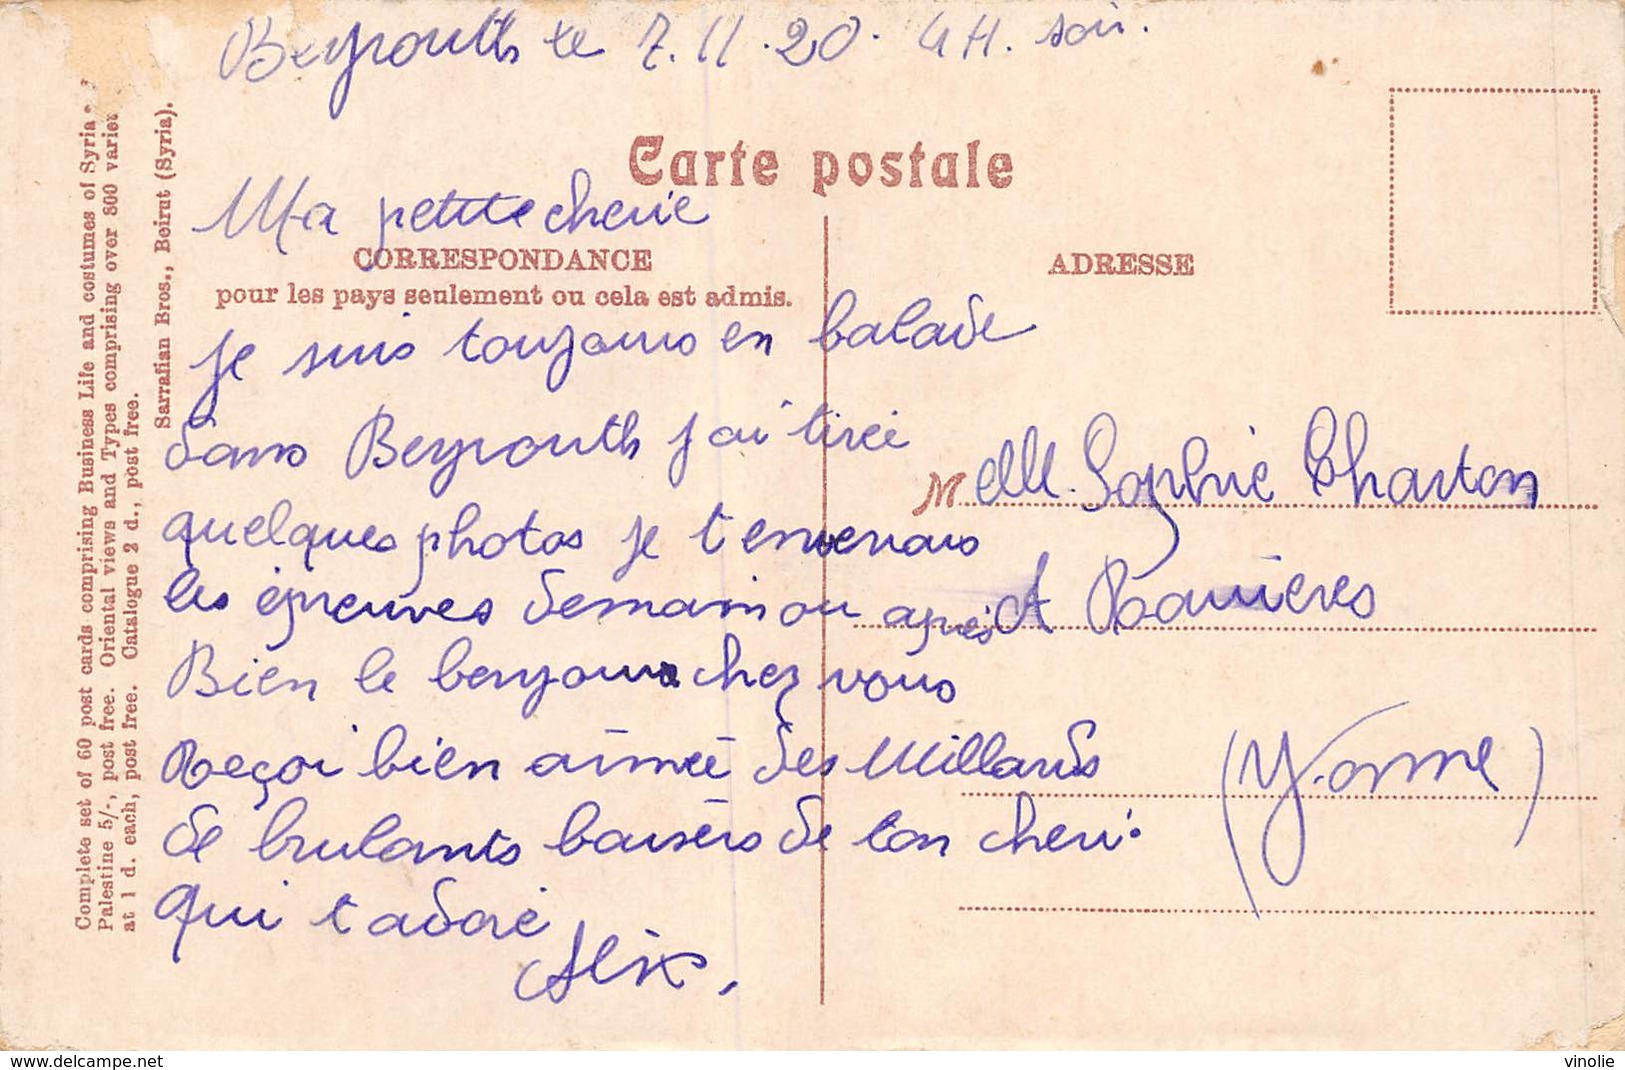 Beyrouth le 7.11.20. 4H. soir.
Carte postale
Ma petite cherie
CORRESPONDANCE
pour les pays seulement ou cela est admis.
ADRESSE
Je suis toujours en balade
dans Beyrouth j'ai tireé
quelques photos je t'enverrais
les épreuves demain ou apres
Bien le bonjour chez vous
Reçoi bien aimeé des Millards
de brulants baisers de ton cheri
qui t'adore
Alix.
Melle Sophie Charton
A Rosnières
(Yvonne)
Complete set of 60 post cards comprising Business Life and costumes of Syria
Palestine 5/-, post free. Oriental views and Types comprising over 800 variet
at 1 d. each, post free. Catalogue 2 d., post free.
Sarrafian Bros., Beirut (Syria).
www.delcampe.net
vinolie